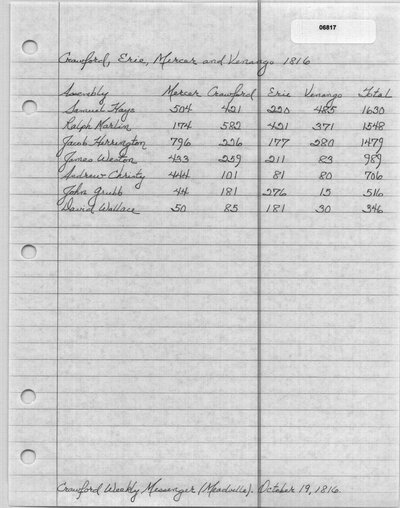 06817
Crawford, Erie, Mercer and Venango 1816
Assembly Mercer Crawford Erie Venango Total
Samuel Hays 504 421 220 485 1630
Ralph Marlin 174 582 421 371 1548
Jacob Herrington 796 226 177 280 1479
James Weston 433 259 211 83 989
Andrew Christy 444 101 81 80 706
John Grubb 44 181 276 15 516
David Wallace 50 85 181 30 346
Crawford Weekly Messenger (Meadville). October 19, 1816.